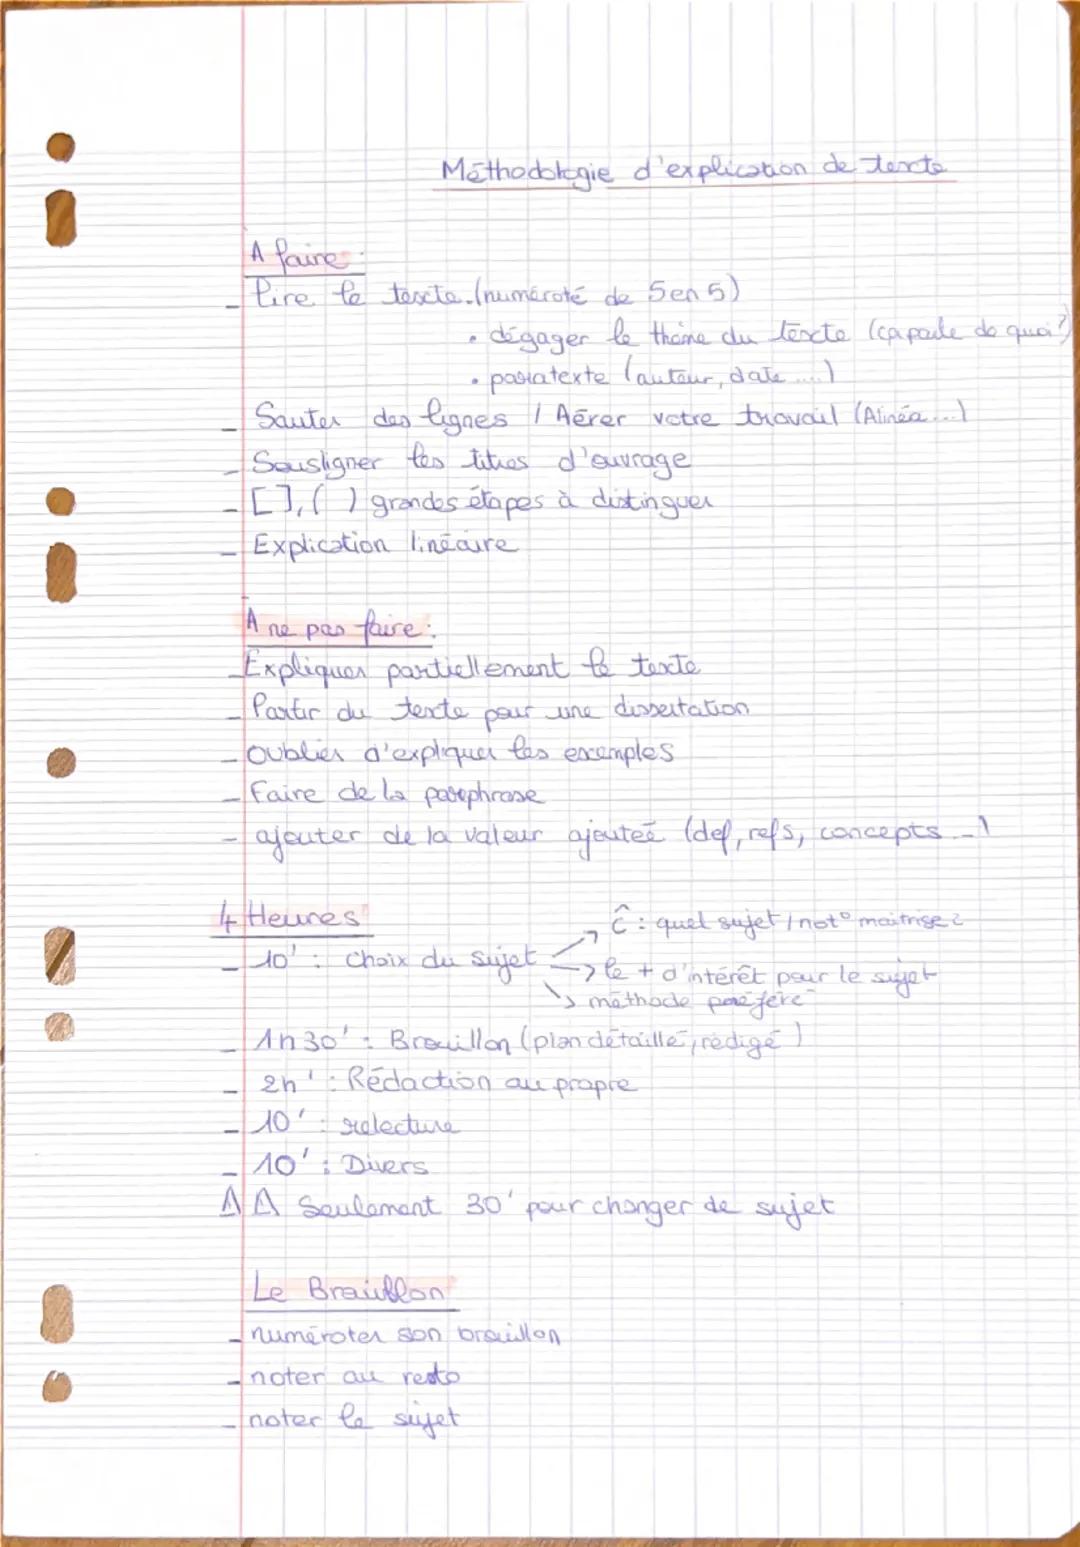 Méthodologie d'explication de texte
A faire :
- lire le texte. (numéroté de 5 en 5)
• dégager le thème du texte (ça parle de quoi ?)
• paratexte (auteur, date ....)
- Sauter des lignes / Aérer votre travail (Alinéa ...)
- Sousligner les titres d'ouvrage
- [ ], ( ) grandes étapes à distinguer
- Explication linéaire
A ne pas faire :
- Expliquer partiellement le texte
- Partir du texte pour une dissertation
- oublier d'expliquer les exemples
- Faire de la paraphrase
- ajouter de la valeur ajouteé (def, refs, concepts ...)
4 Heures
ĉ : quel sujet / not° maitrise ?
- 10' : Choix du sujet → le + d'intérêt pour le sujet
méthode préféré
- 1h30' : Brouillon (plan détaillé, rédigé)
- 2h' : Rédaction au propre
- 10' : relecture
- 10' : Divers
Δ Δ Seulement 30' pour changer de sujet
Le Brouillon
- numéroter son brouillon
- noter au
- noter le sujet